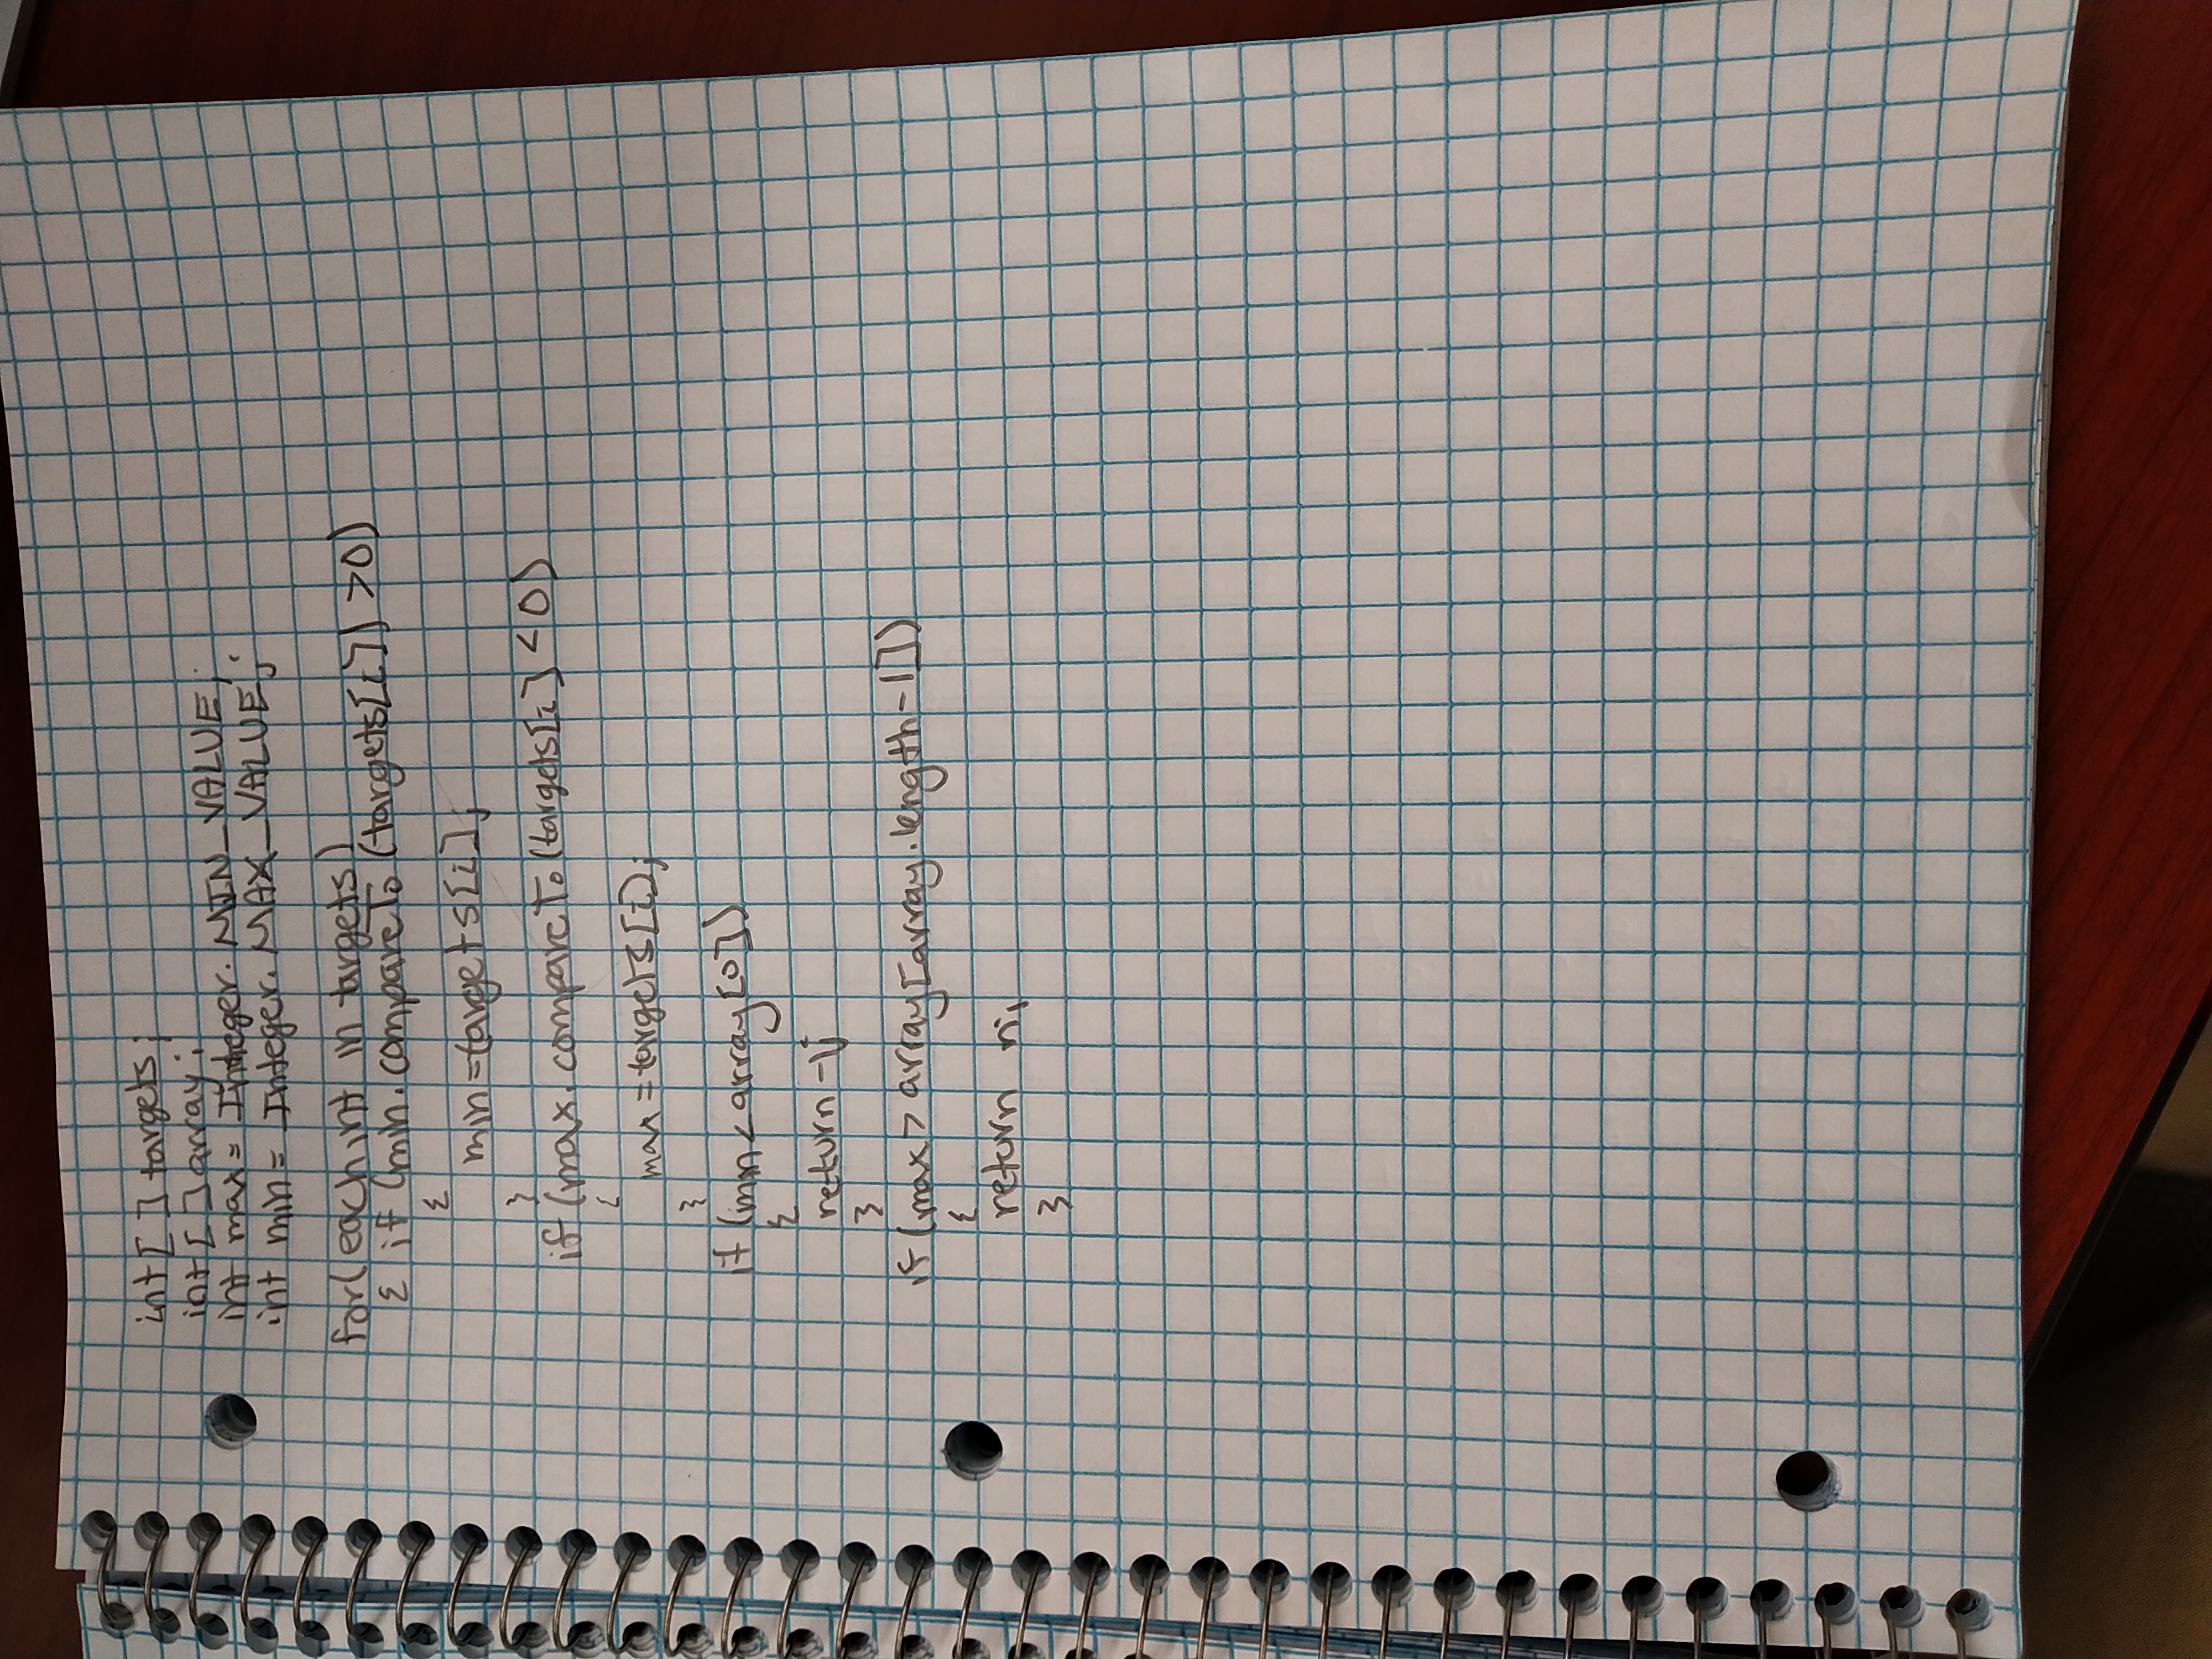 int[ ] targets;
int[ ] array;
int max = Integer.MIN_VALUE;
int min = Integer.MAX_VALUE;
for(each int in targets)
{ if (min.compareTo(targets[i]) >0)
{
min=targets[i];
}
if (max.compareTo(targets[i] <0)
{
max =targets[i];
}
if (min< array[0])
{
return -1;
}
if (max > array[array.length-1])
{
return n;
}